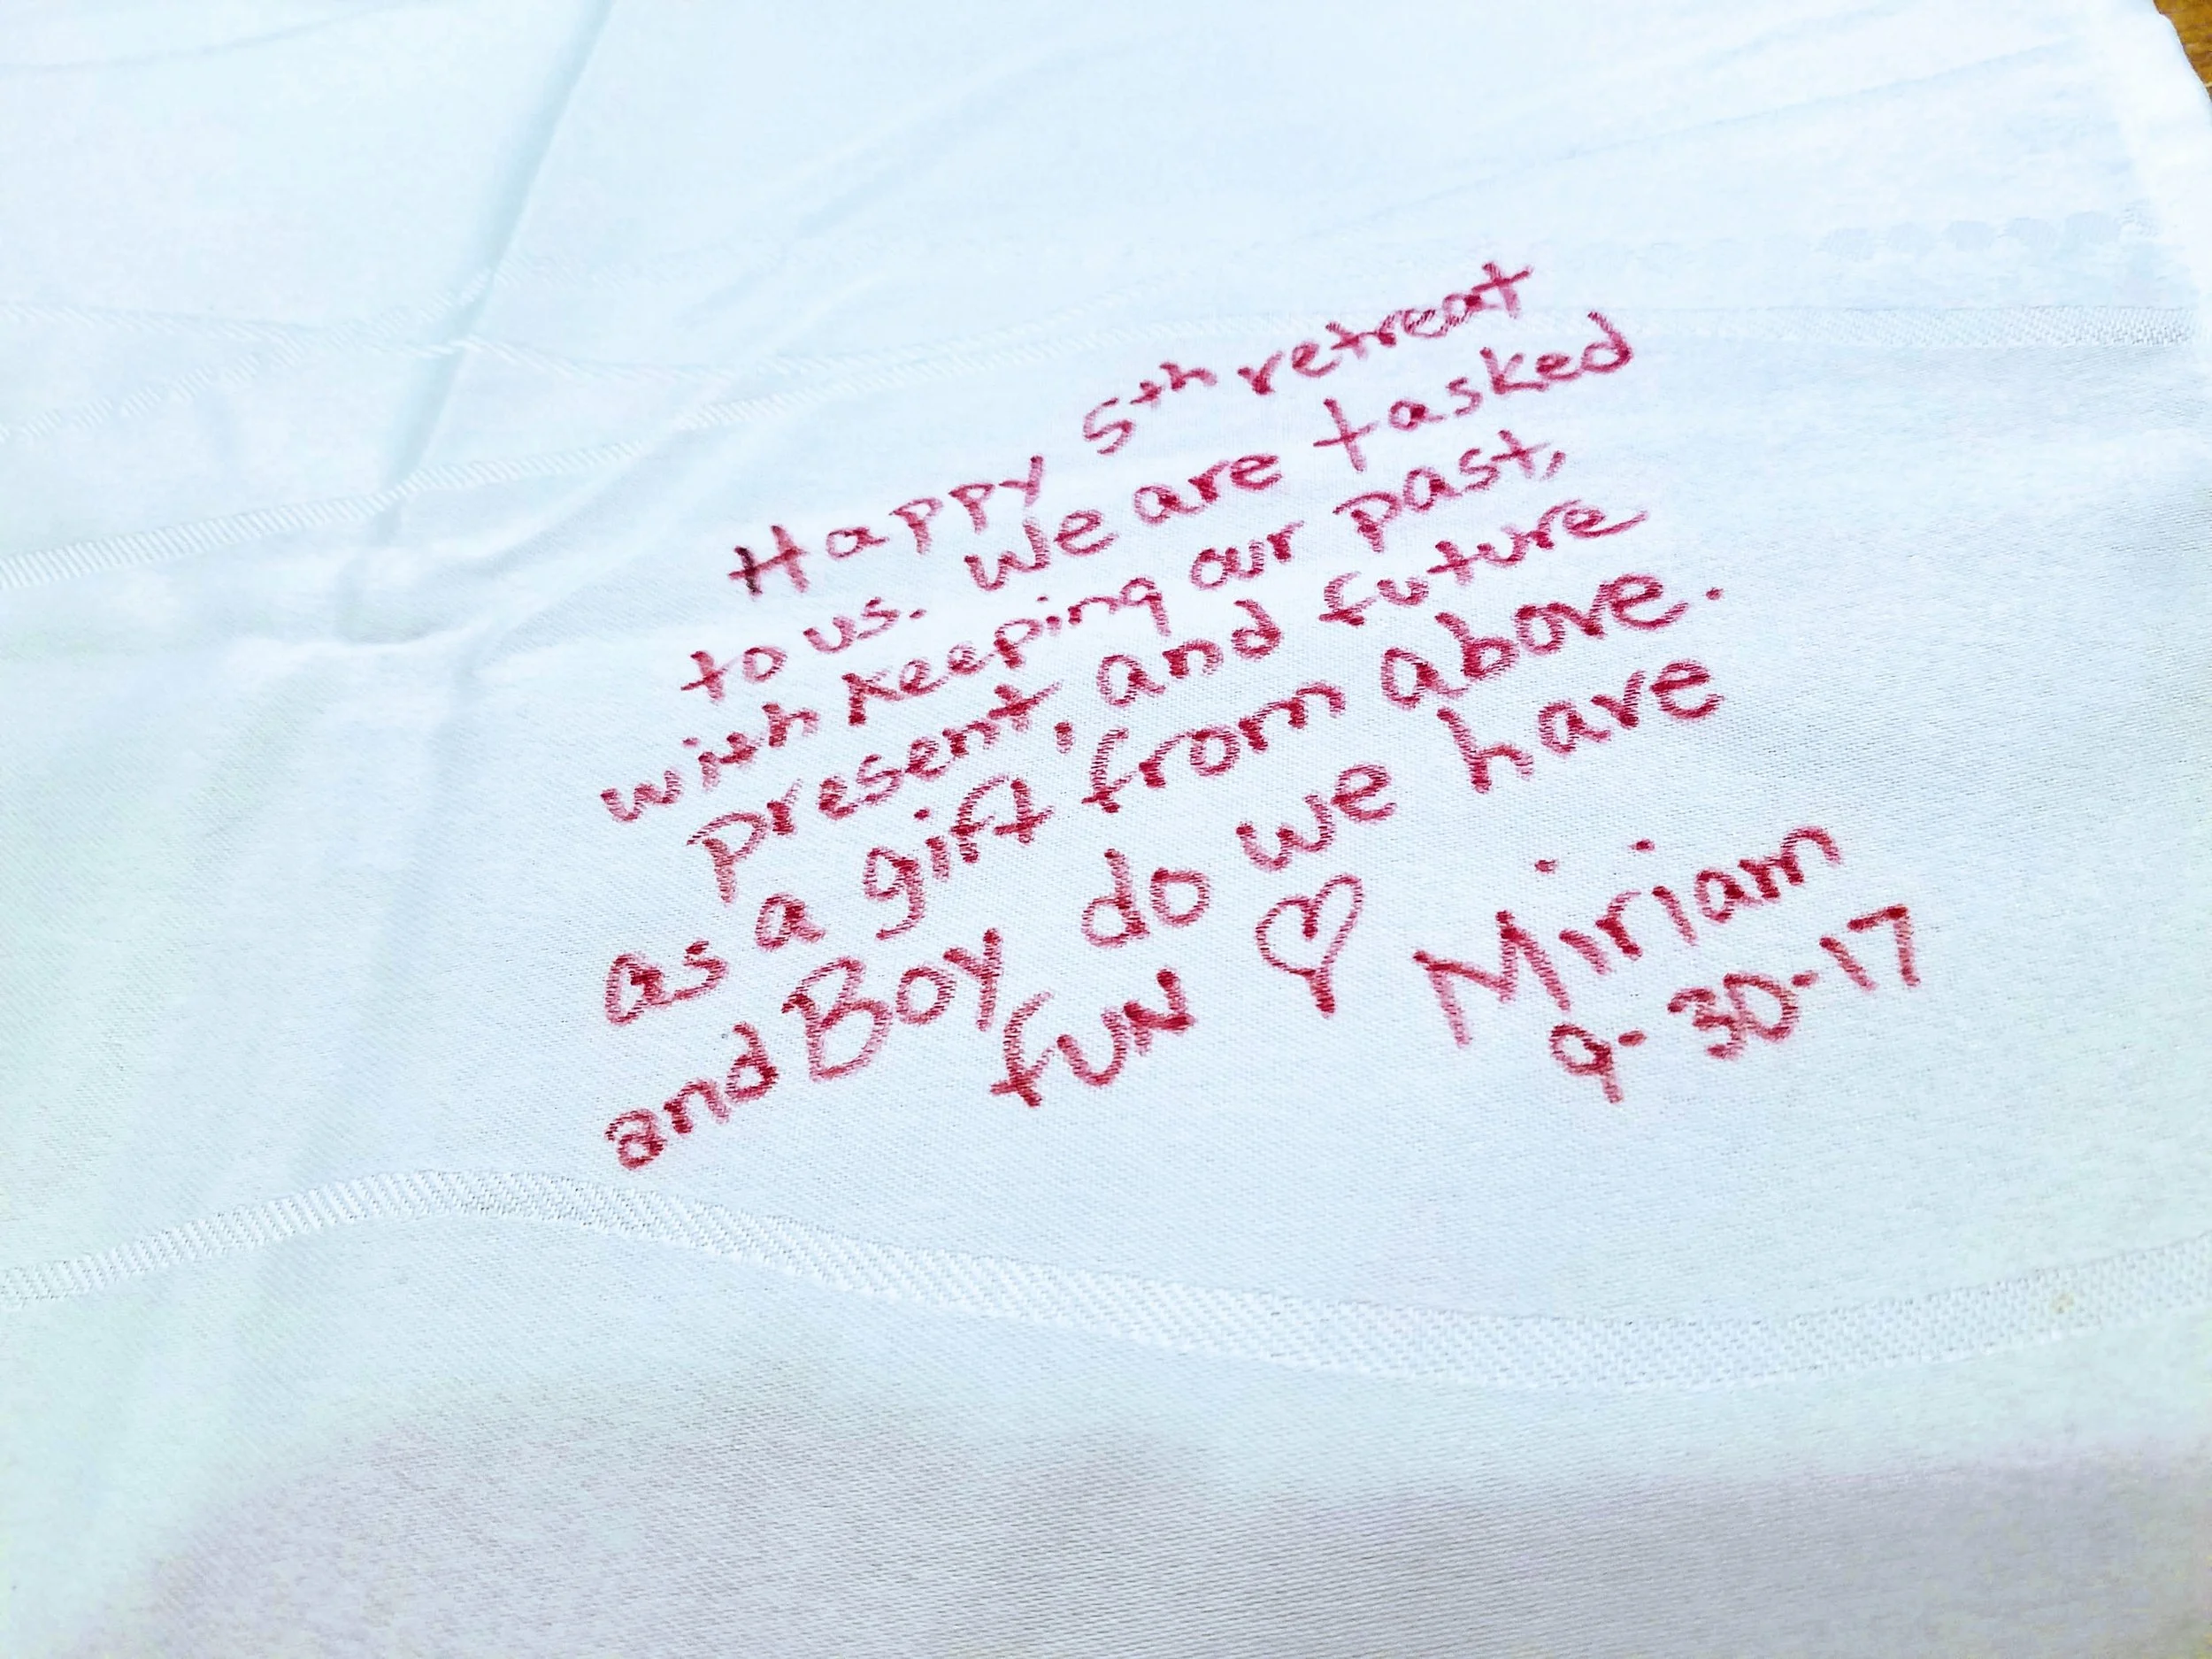 Happy 5th retreat
to us. We are tasked
with keeping our past,
present, and future
as a gift from above.
and Boy do we have
fun ♡ Miriam
9-30-17